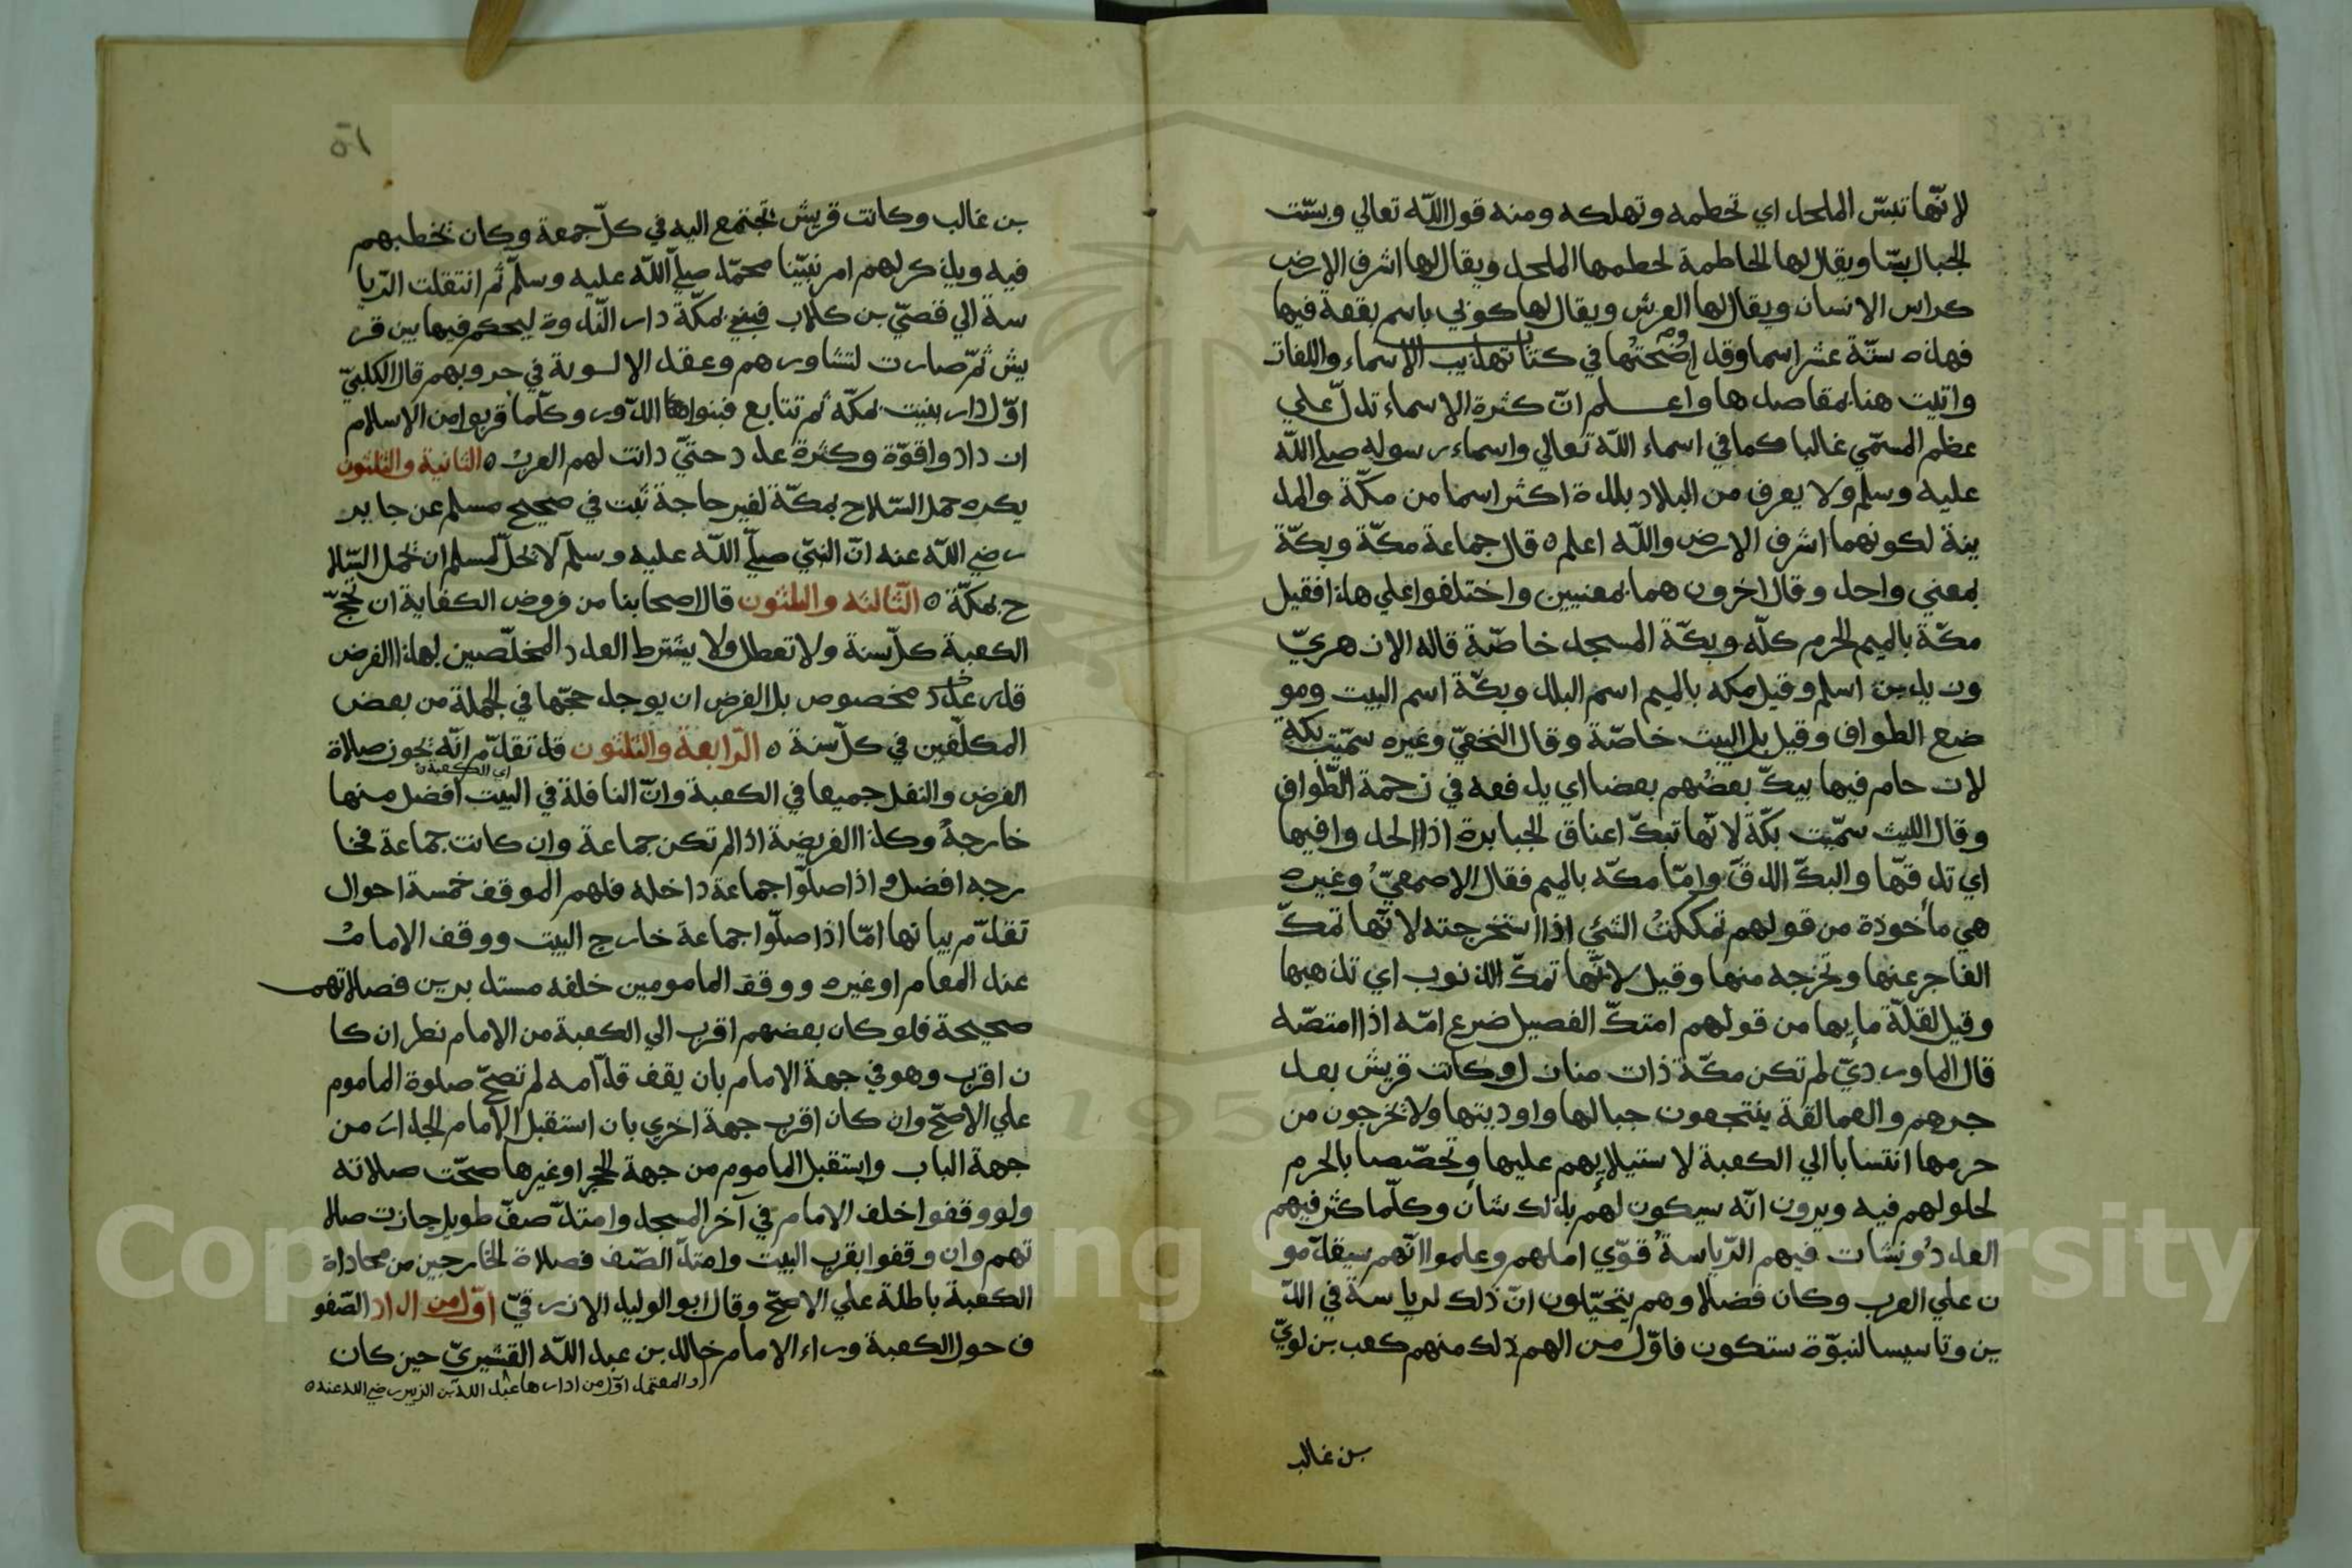 لانّها تبسّ الملحد اي تحطمه وتهلكه ومنه قول الله تعالي وبسّت
الجبال بسّا ويقال لها الحاطمة لحطمها الملحد ويقال لها اشرف الارض
كراس الانسان ويقال لها العرش ويقال لها كوني باسم بقعة فيها
فهذه ستّة عشر اسما وقد اوضحتها في كتاب تهذيب الاسماء واللغات
واتيت هنا بمقاصدها واعلم انّ كثرة الاسماء تدلّ علي
عظم المسمّي غالبا كما في اسماء الله تعالي واسماء رسوله صلي الله
عليه وسلم ولا يعرف من البلاد بلدة اكثر اسما من مكّة والمد
ينة لكونهما اشرف الارض والله اعلم ه قال جماعة مكّة وبكّة
بمعني واحد وقال اخرون هما بمعنيين واختلفوا علي هذا فقيل
مكّة بالميم الحرم كلّه وبكّة المسجد خاصّة قاله الازهريّ
وزيد بن اسلم وقيل مكه بالميم اسم البلد وبكّة اسم البيت ومو
ضع الطواف وقيل بل البيت خاصّة وقال النخعيّ وغيره سمّيت بكة
لازدحام فيها يبكّ بعضهم بعضا اي يدفعه في زحمة الطّواف
وقال الليث سمّيت بكّة لانّها تبكّ اعناق الجبابرة اذا الحدوا فيها
اي تدقّها والبكّ الدقّ وامّا مكّه بالميم فقال الاصمعيّ وغيره
هي مأخوذة من قولهم تمككتُ الشئي اذا استخرجته لانّها تمكّ
الفاجر عنها وتخرجه منها وقيل لانّها تمكّ الذنوب اي تذهبها
وقيل لقلّة مايها من قولهم امتكّ الفصيل ضرع امّه اذا امتصّه
قال الماورديّ لم تكن مكّة ذات منازل وكانت قريش بعد
جرهم والعمالقة ينتجعون جبالها واوديتها ولا يخرجون من
حرمها انتسابا الي الكعبة لاستيلايهم عليها وتخصّصا بالحرم
لحلولهم فيه ويرون انّه سيكون لهم بذلك شان وكلّما كثر فيهم
العددُ ونشات فيهم الرّياسةُ قوّي املهم وعلموا انّهم سيقدّمو
ن علي العرب وكان فضلا وهم يتخيّلون انّ ذلك لرياسة في الدّ
ين وتاسيسا لنبوّة ستكون فاوّل من الهم ذلك منهم كعب بن لويّ
بن غالب
٥١
بن غالب وكانت قريش تجتمع اليه في كلّ جمعة وكان يخطبهم
فيه ويذكر لهم امر نبيّنا محمّد صلي الله عليه وسلم ثم انتقلت الرّيا
سة الي قصيّ بن كلاب فبني بمكّة دار النّدوة ليحكم فيها بين قر
يش ثمّ صارت لتشاورهم وعقد الالوية في حروبهم قال الكلبيّ
اوّل دار بنيت بمكّه ثم تتابع فبنوا الدّور وكلّما قربوا من الاسلام
ازدادوا قوّة وكثرة عدد حتيّ دانت لهم العربُ ه الثانية والثلثون
يكره حمل السّلاح بمكّة لغير حاجة ثبت في صحيح مسلم عن جابر
رضي الله عنه انّ النبيّ صلي الله عليه وسلم لا يحلّ لمسلم ان يحمل السّلا
ح بمكّة ه الثّالثه والثلثون قال اصحابنا من فروض الكفاية ان تحجّ
الكعبة كلّ سنة ولا تعطل ولا يشترط لعدد المخلّصين لهذا الفرض
قدر عدد مخصوص بل الفرض ان يوجد حجّها في الجملة من بعض
المكلّفين في كلّ سنة ه الرّابعة والثلثون قد تقدّم انّه يجوز صلاة
الفرض والنفل جميعا في الكعبة وانّ النافلة في البيت افضل منها
اي الكعبة
خارجهُ وكذا الفريضة اذا لم تكن جماعة وان كانت جماعة فخا
رجه افضل و اذا صلّوا جماعة داخله فلهم الموقف خمسة احوال
تقدّم بيانها امّا اذا صلّوا جماعة خارج البيت ووقف الامامُ
عند المقام او غيره ووقف المامومين خلفه مستديرين فصلاتهم
صحيحة فلو كان بعضهم اقرب الي الكعبة من الامام نظر ان كا
ن اقرب وهو في جهة الامام بان يقف قدّامه لم تصحّ صلوة الماموم
علي الاصحّ وان كان اقرب جهة اخري بان استقبل الامام الجدار من
جهة الباب واستقبل الماموم من جهة الحجر او غيرها صحّت صلاته
ولو وقفوا خلف الامام في آخر المسجد وامتدّ صفّ طويل جازت صلا
تهم وان وقفوا بقرب البيت وامتدّ الصّف فصلاة الخارجين من محاذاة
الكعبة باطلة علي الاصحّ وقال ابو الوليد الازرقيّ اوّل من ادار الصّفو
ف حول الكعبة وراء الامام خالد بن عبد الله القشيريّ حين كان
والمعتمد اوّل من ادارها عبد الله بن الزبير رضي الله عنه ه
Copyright © King Saud University
1957